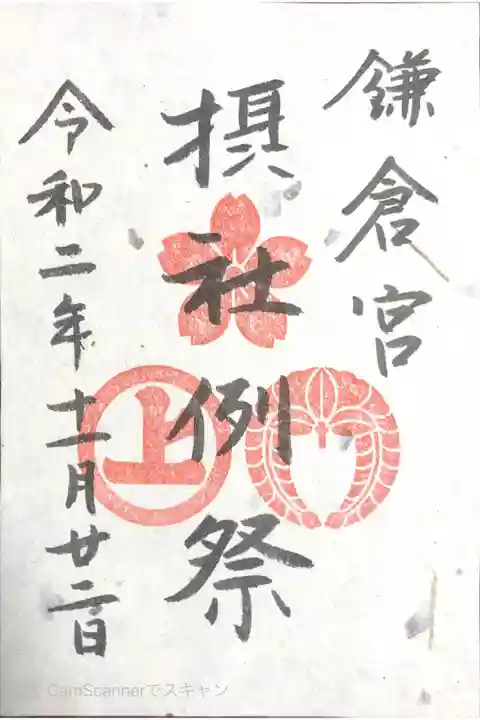 鎌倉宮
摂社例祭
上
令和二年十一月廿二日
CamScannerでスキャン